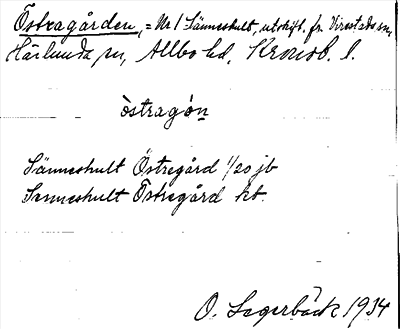 Östragården, = Nr 1 Sänneshult, utskift. fr. Virestads sn,
Härlunda sn, Allbo hd, Kronob. l.
östragón
Sänneshult Östregård 1/20 jb
Senneshult Östregård kb.
O. Segerbäck 1934